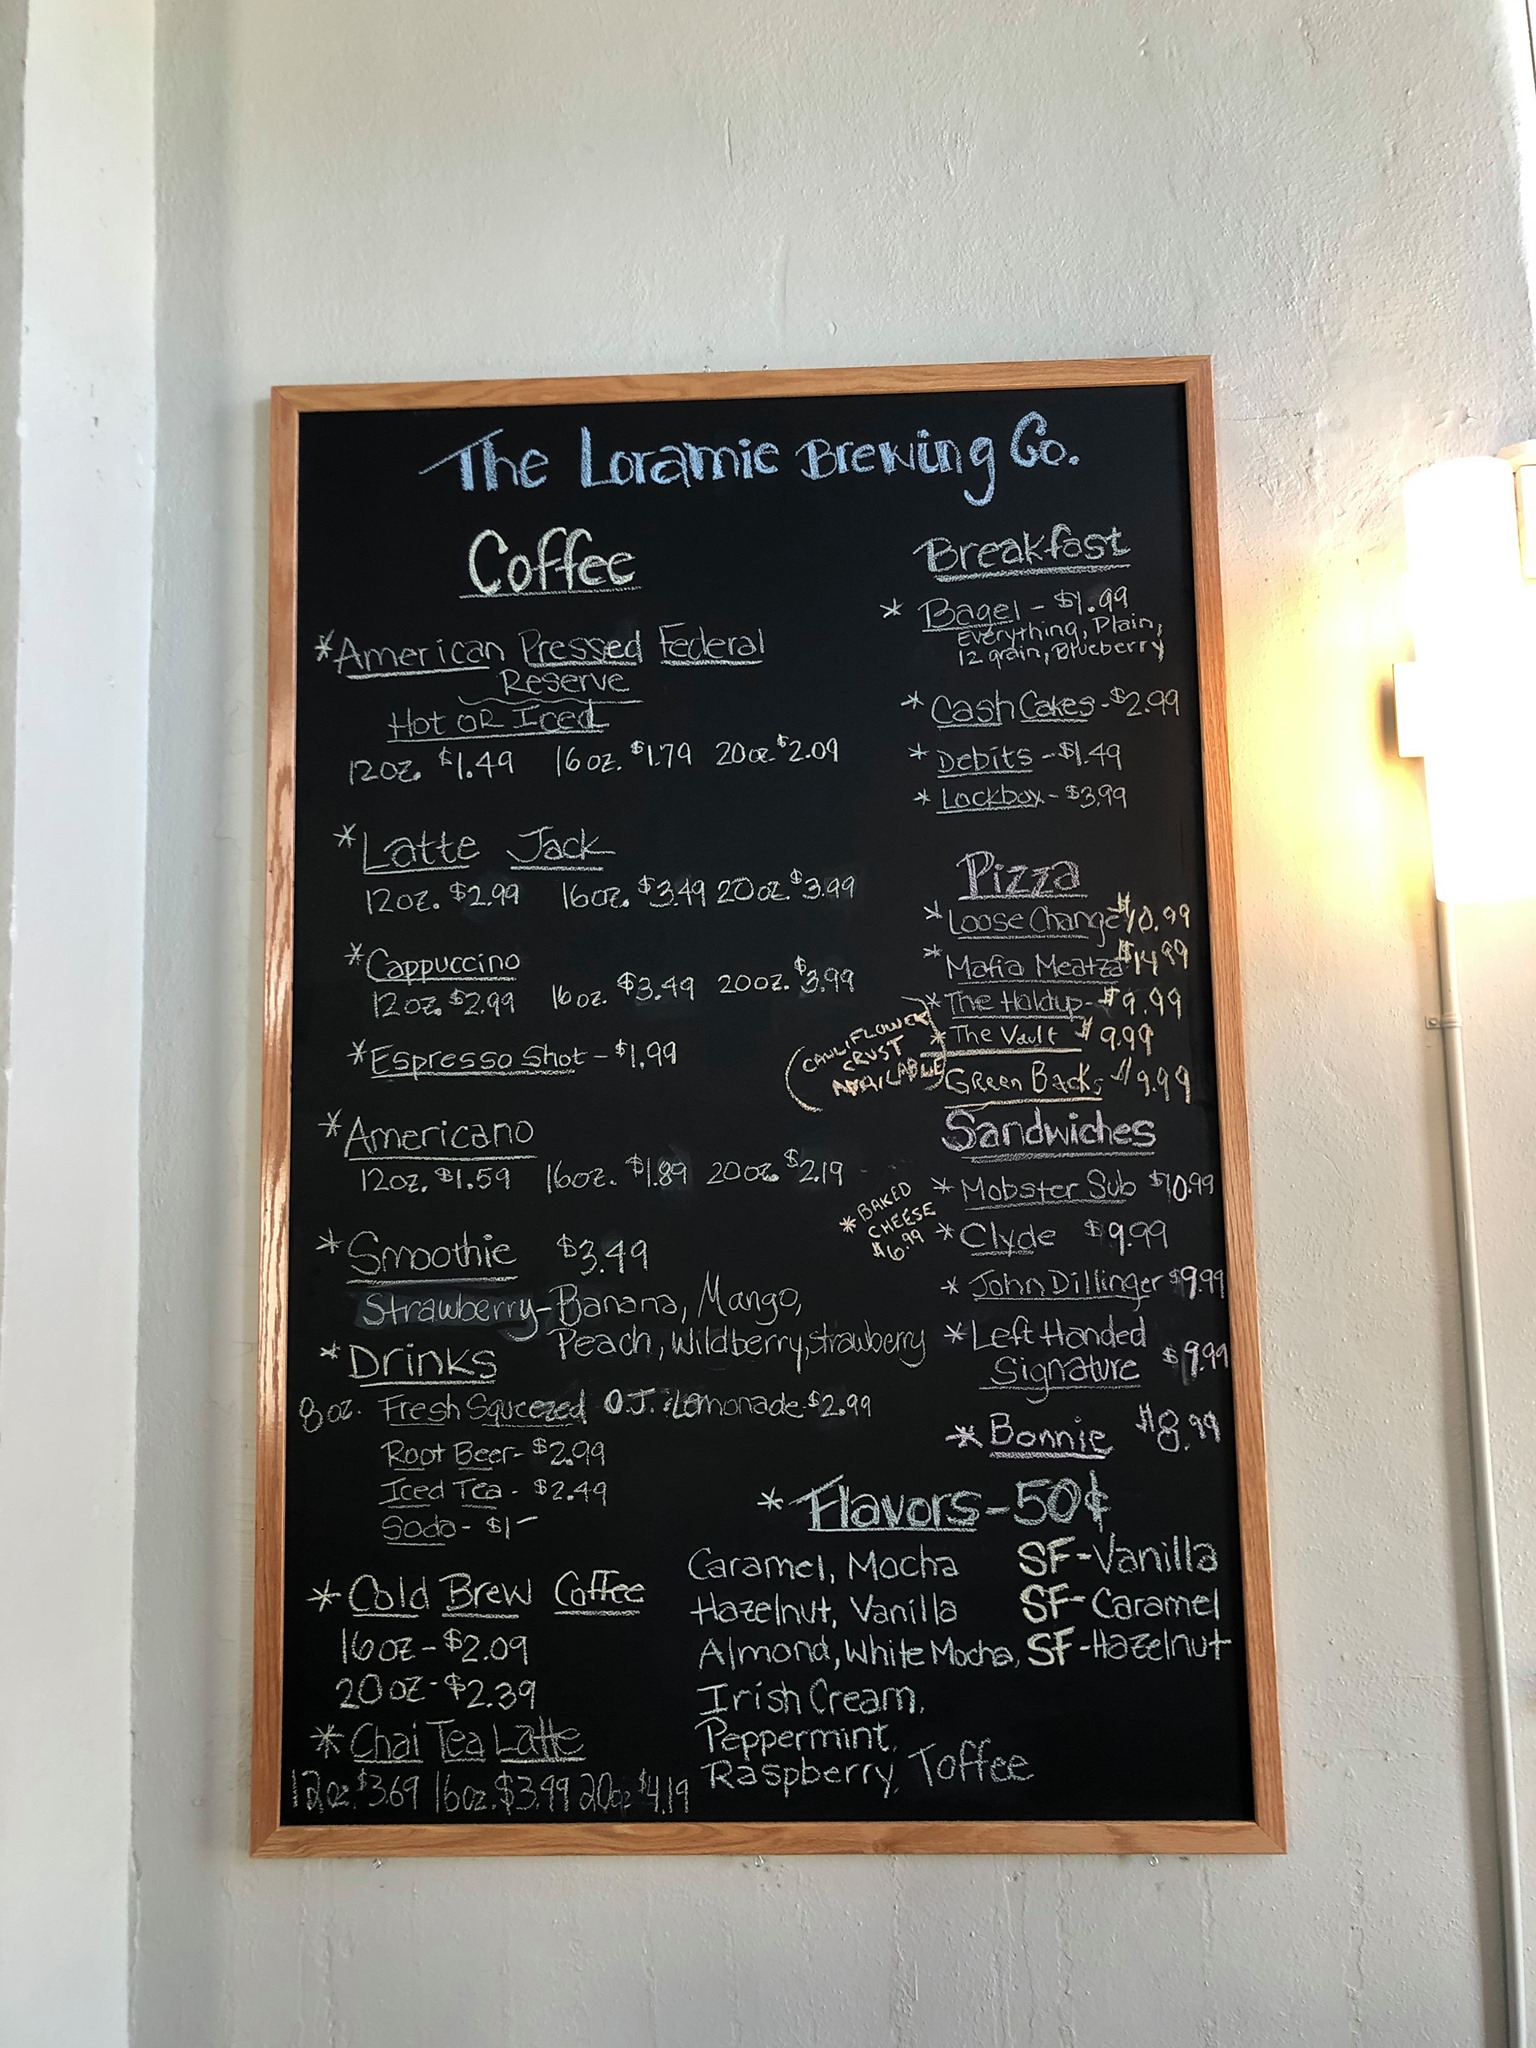 The Loramie Brewing Co.
Coffee
*American Pressed Federal
Reserve
Hot OR Iced
12oz. $1.49 16oz. $1.79 20oz. $2.09
*Latte Jack
12oz. $2.99 16oz. $3.49 20oz. $3.99
*Cappuccino
12oz. $2.99 16oz. $3.49 20oz. $3.99
*Espresso Shot - $1.99
*Americano
12oz. $1.59 16oz. $1.89 20oz. $2.19
*Smoothie $3.49
Strawberry-Banana, Mango,
Peach, Wildberry, strawberry
*Drinks
8oz. Fresh Squeezed O.J. Lemonade $2.99
Root Beer - $2.99
Iced Tea - $2.49
Soda - $1-
*Cold Brew Coffee
16oz - $2.09
20oz - $2.39
*Chai Tea Latte
12oz. $3.69 16oz. $3.99 20oz $4.19
Breakfast
* Bagel - $1.99
Everything, Plain,
12 grain, Blueberry
* Cash Cakes - $2.99
* Debits - $1.49
* Lockbox - $3.99
Pizza
* Loose Change $10.99
* Mafia Meatza $14.99
* The Holdup - $9.99
* The Vault $9.99
Green Backs $9.99
CAULIFLOWER
CRUST
AVAILABLE
Sandwiches
* Mobster Sub $10.99
* Clyde $9.99
* John Dillinger $9.99
* Left Handed
Signature $9.99
* Bonnie $8.99
* BAKED
CHEESE
$6.99
* Flavors - 50¢
Caramel, Mocha
Hazelnut, Vanilla
Almond, White Mocha,
Irish Cream,
Peppermint,
Raspberry, Toffee
SF-Vanilla
SF-Caramel
SF-Hazelnut